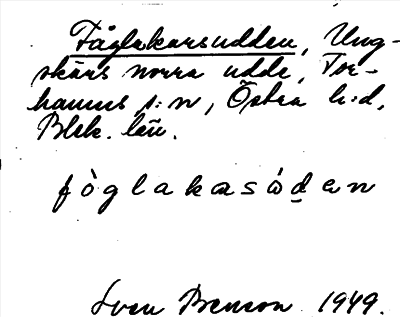 Fåglakarsudden, Ung-
skärs norra udde, Tor-
hamns s:n, Östra h:d,
Blek. län.
fòglakasòden
Sven Benson 1949.